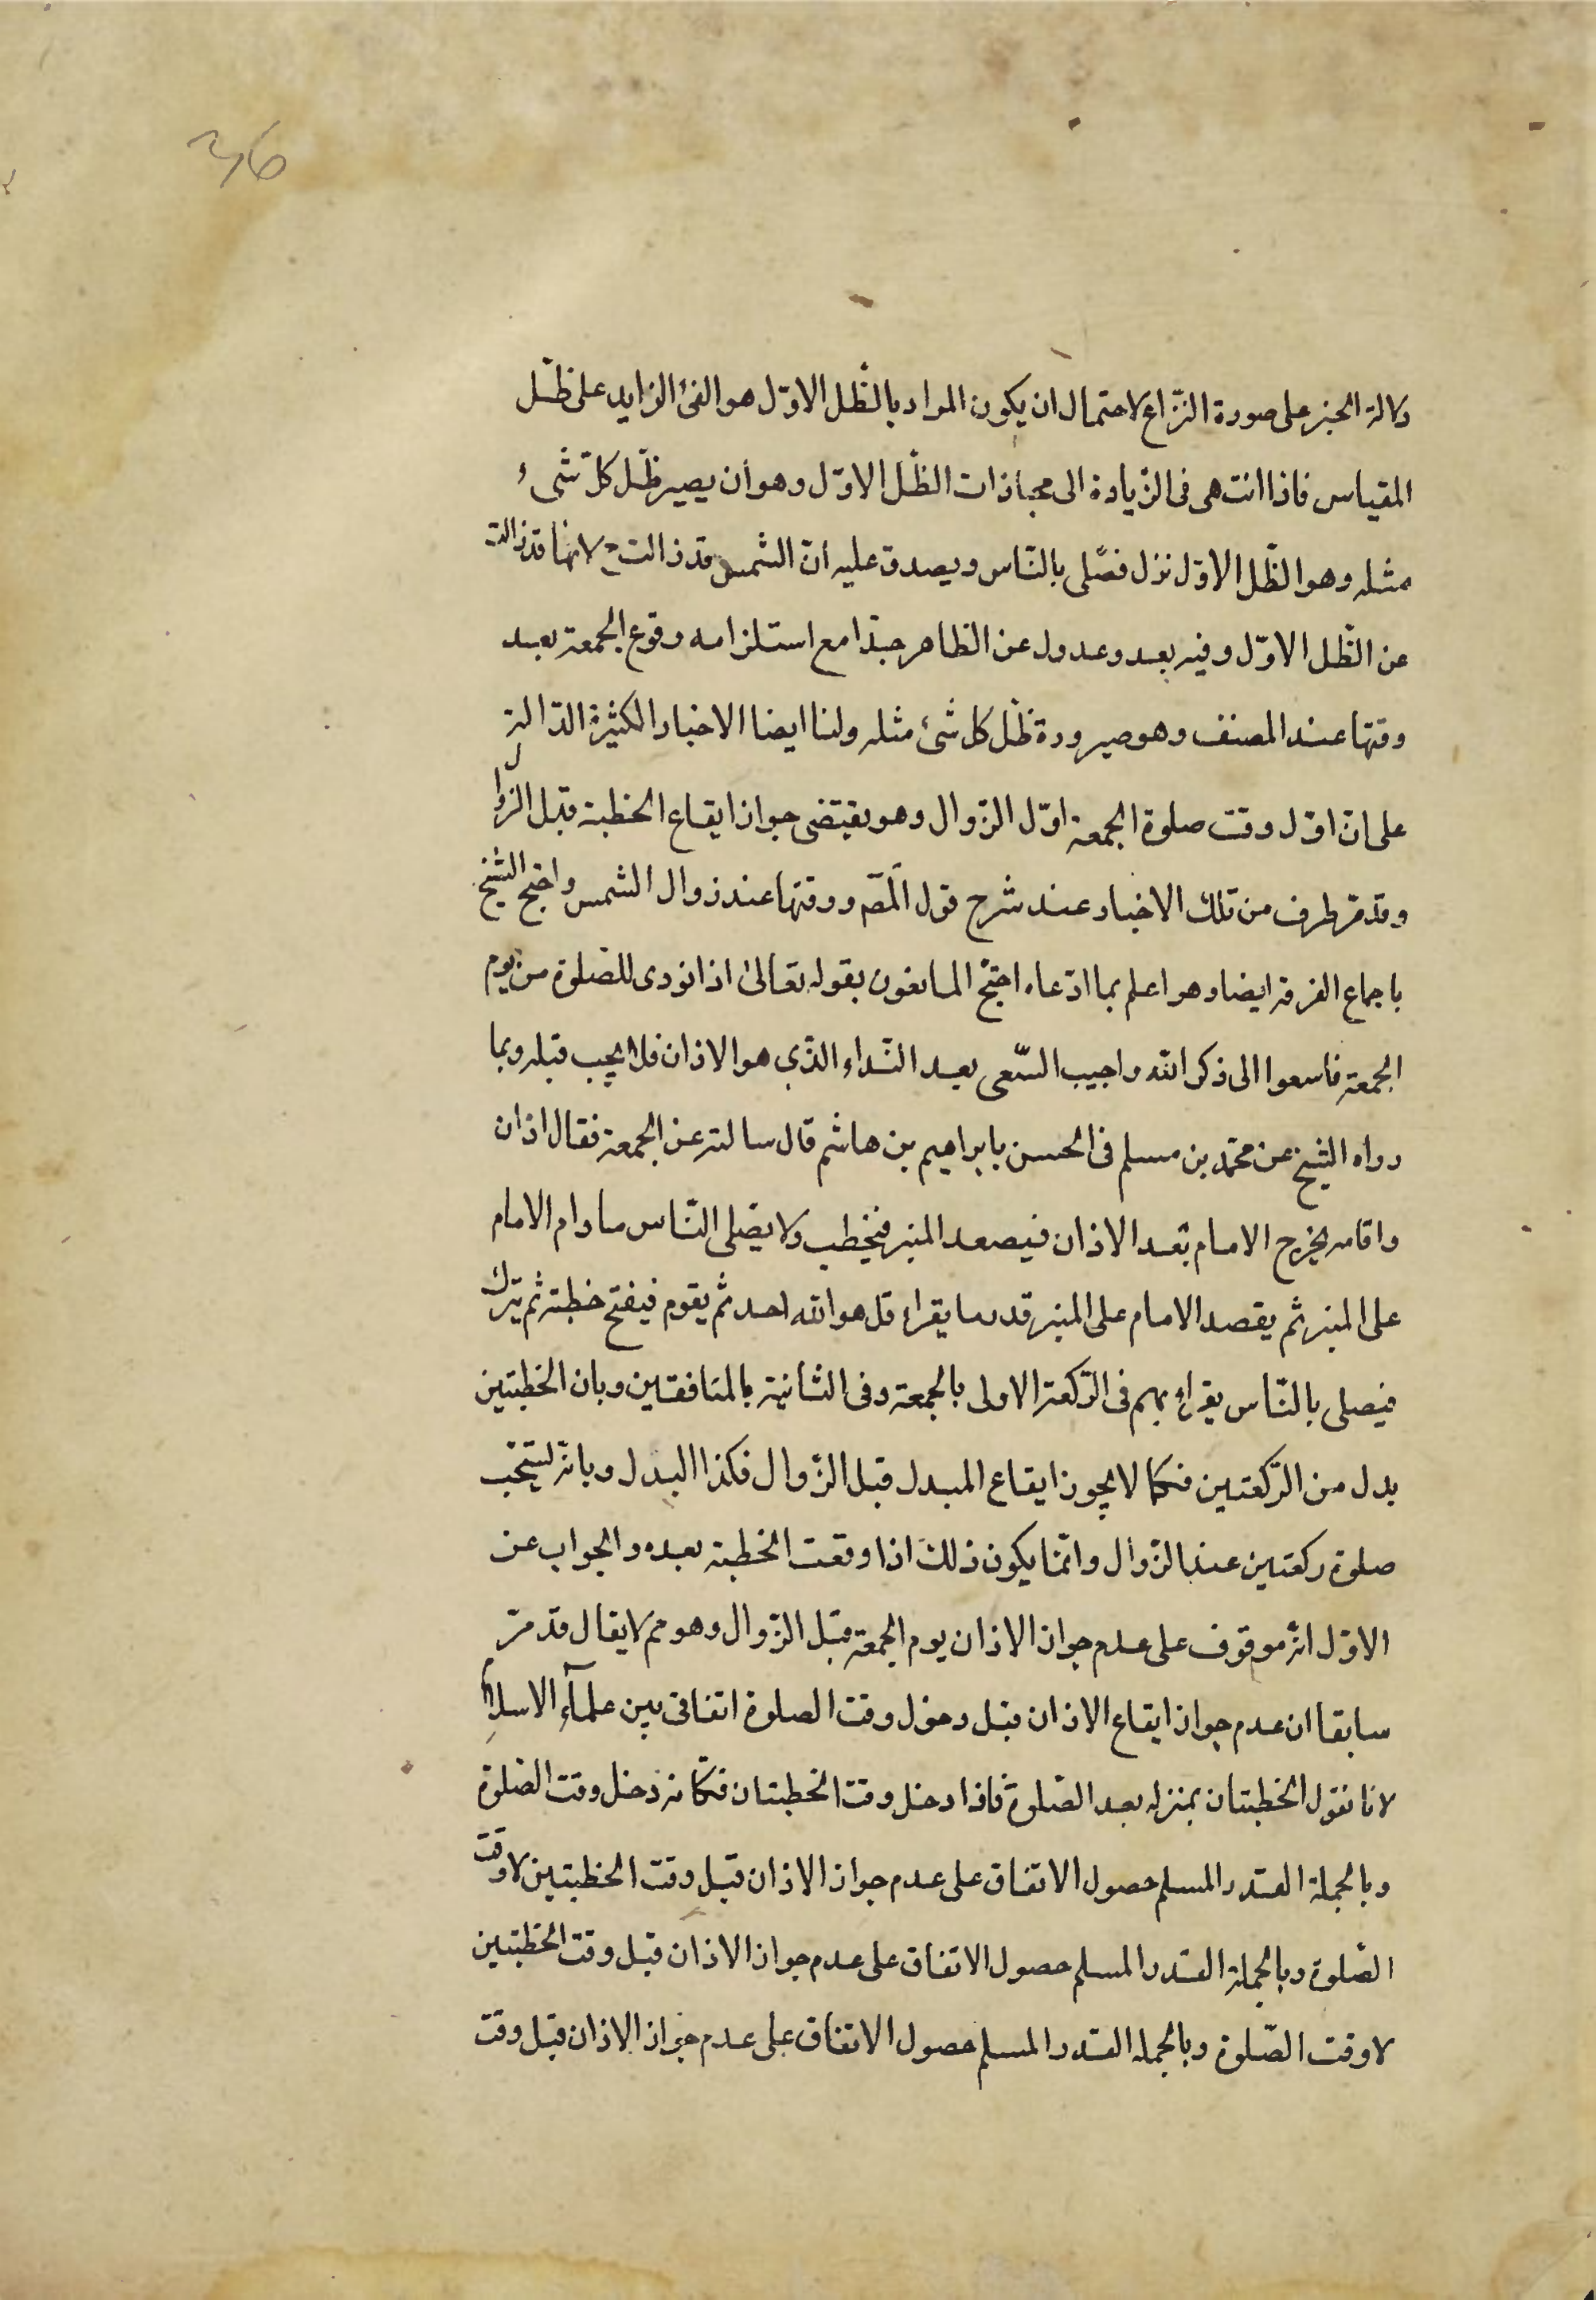 36
دلالة الخبر على صورة النّزاع لاحتمال ان يكون المراد بالظّل الاوّل هو الفئ الزايد على ظّل
المقياس فاذا انتهى فى الزّيادة الى محاذات الظّل الاوّل وهو أن يصير ظّل كلّ شىء
مثله وهو الظّل الاوّل نزل فصّلى بالنّاس ويصدق عليه انّ الشّمس قد زالت ح لانها قد زالت
عن الظّل الاوّل وفيه بعد وعدول عن الظاهر جدّا مع استلزامه وقوع الجمعة بعد
وقتها عند المصنف وهو صيرورة ظّل كل شئ مثله ولنا ايضا الاخبار الكثيرة الدّالة
على انّ اوّل وقت صلوة الجمعة اوّل الزّوال وهو يقتضى جواز ايقاع الخطبة قبل الزّوال
وقد مرّ طرف من تلك الاخبار عند شرح قول المصّ ووقتها عند زوال الشمس واحتج الشيخ
باجماع الفرقة ايضا وهو اعلم بما ادّعاه احتجّ المانعون بقوله تعالى اذا نودى للصّلوة من يوم
الجمعة فاسعوا الى ذكر الله واجيب السّعى بعد النّداء الذّي هو الاذان فلا يجب قبله وبما
رواه الشيخ عن محمّد بن مسلم فى الحسن بابراهيم بن هاشم قال سالته عن الجمعة فقال اذان
واقامه يخرج الامام بعد الاذان فيصعد المنبر فيخطب ولا يصّلى النّاس مادام الامام
على المنبر ثم يقصد الامام على المنبر قدر ما يقراء قل هو الله احد ثم يقوم فيفتح خطبته ثم يترك
فيصلى بالنّاس يقراء بهم فى الرّكعة الاولى بالجمعة وفى الثانية بالمنافقين وبان الخطبتين
بدل من الرّكعتين فكما لا يجوز ايقاع المبدل قبل الزّوال فكذا البدل وبانّه يستحّب
صلوة ركعتين عند الزّوال وانّما يكون ذلك اذا وقعت الخطبة بعده والجواب عن
الاوّل انّه موقوف على عدم جواز الاذان يوم الجمعة قبل الزّوال وهو مم لا يقال قد مرّ
سابقا ان عدم جواز ايقاع الاذان قبل دخول وقت الصلوة اتفاقى بين علمآء الاسلام
لانا نقول الخطبتان بمنزله بعد الصّلوة فاذا دخل وقت الخطبتان فكانه دخل وقت الصّلوة
وبالجملة القدر المسلم حصول الاتفاق على عدم جواز الاذان قبل وقت الخطبتين لا وقت
الصّلوة وبالجملة القدر المسلم حصول الاتفاق على عدم جواز الاذان قبل وقت الخطبتين
لا وقت الصّلوة وبالجمله القدر المسلم حصول الاتفاق على عدم جواز الاذان قبل وقت